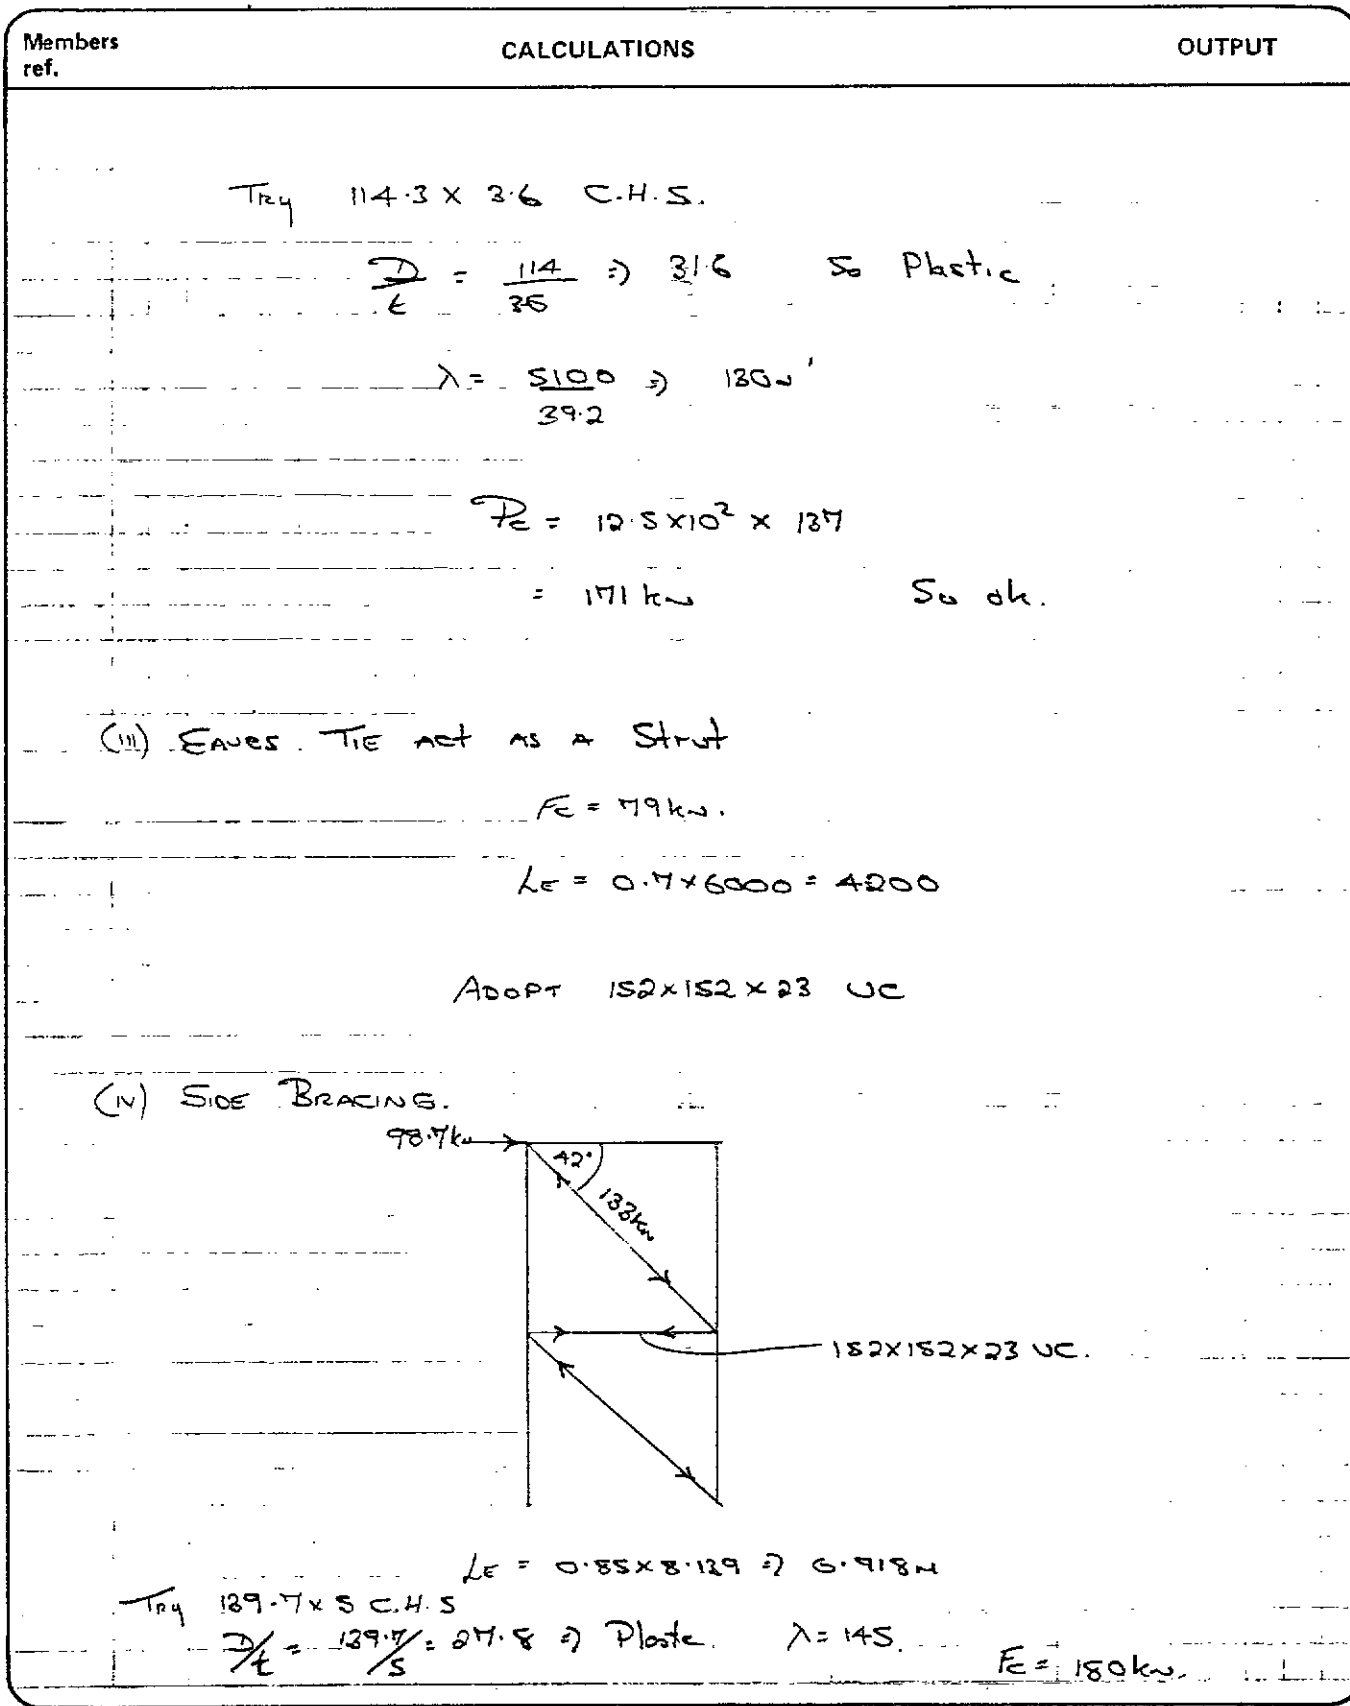 Members ref.
CALCULATIONS
OUTPUT
Try 114.3 x 3.6 C.H.S.
D/t = 114/3.6 => 31.6 So Plastic
λ = 5100/39.2 => 130
Pc = 12.5 x 10² x 137
= 171 kN So ok.
(iii) EAVES TIE ACT AS A Strut
Fc = 79 kN.
LE = 0.7 x 6000 = 4200
ADOPT 152 x 152 x 23 UC
(iv) SIDE BRACING.
98.7kN
42°
133kN
152 x 152 x 23 UC.
LE = 0.85 x 8.139 => 6.918m
Try 139.7 x 5 C.H.S
D/t = 139.7/5 = 27.8 => Plastic. λ = 145.
Fc = 180 kN.